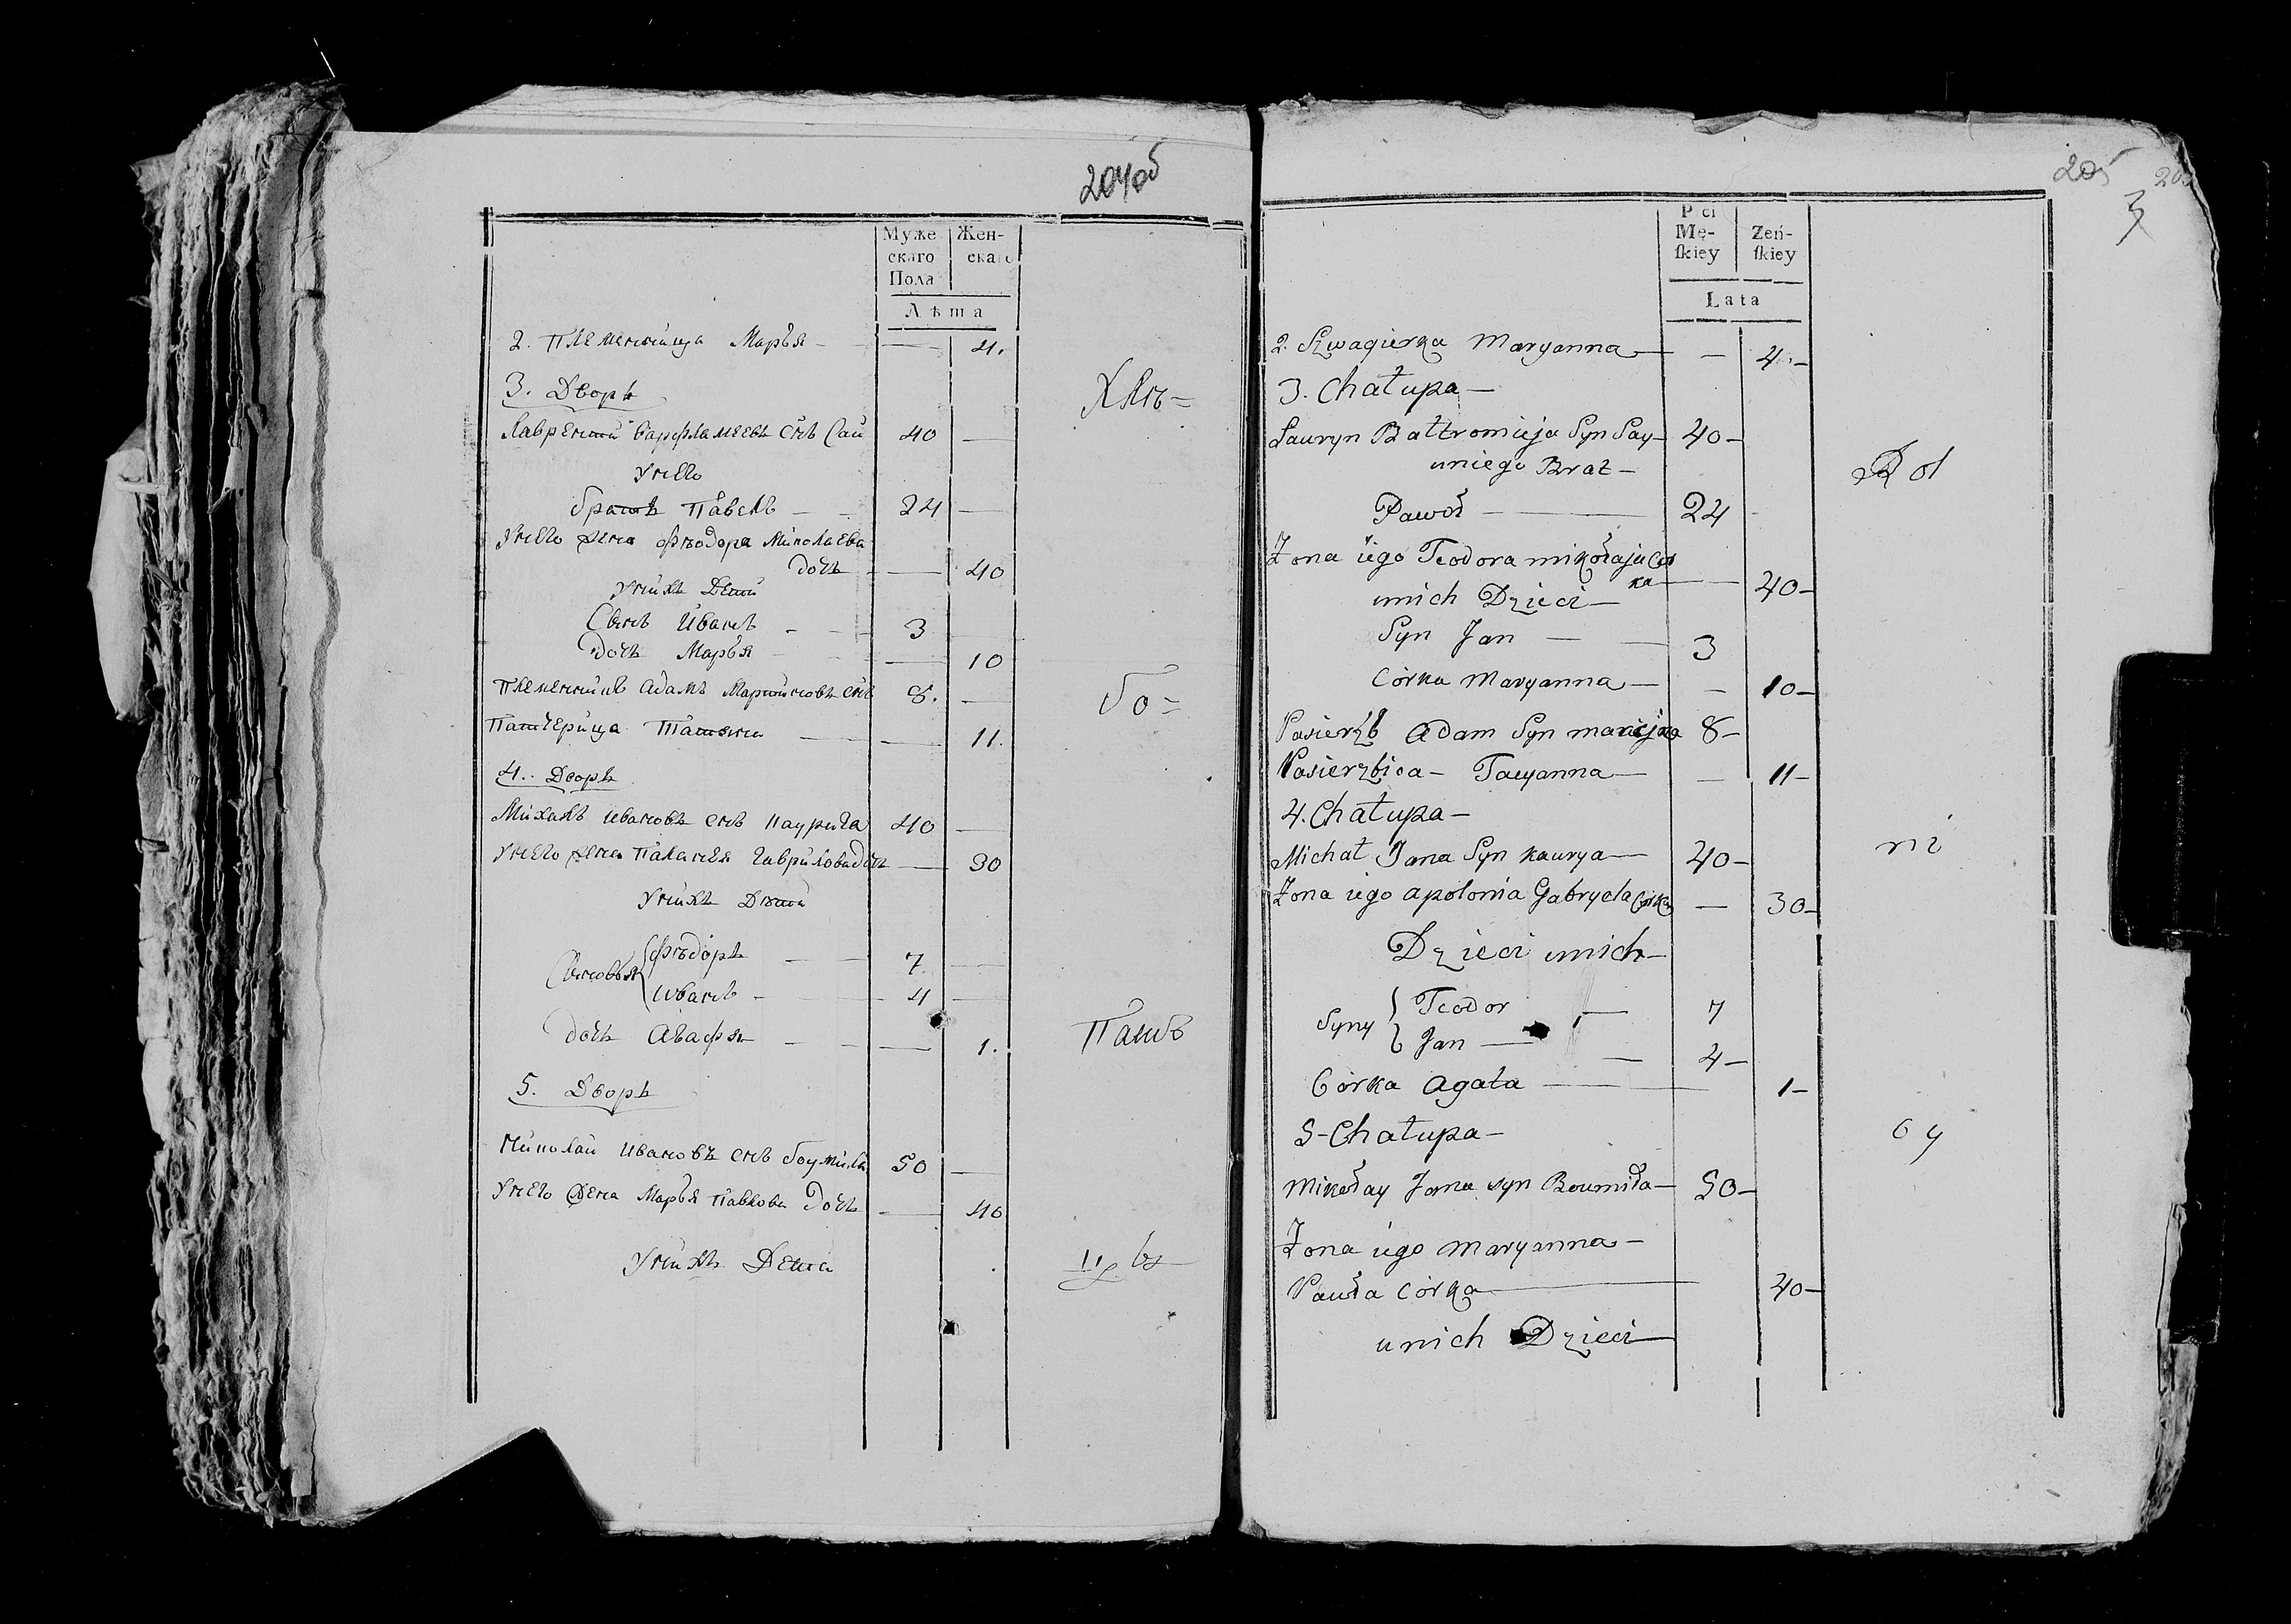 204об
Муже
скаго
Пола
Жен-
скаго
Лѣта
2. Племенница Марья — 4.
3. Дворъ
Лаврентий Варфламеевъ Снъ Сай 40 —
Унего
братъ Павелъ — 24 —
Унего жена Фѣодора Миколаева
дочь — 40
Унихъ Дети
Сынъ Иванъ — 3 —
дочь Марья — 10
Племенникъ Адамъ Мартиновъ снъ 8. —
Патчерица Татьяна — 11.
4. Дворъ
Михалъ Ивановъ снъ Каурыга 40 —
Унего жена Паланея Гаврилова дочь — 30
Унихъ Дѣти
Сыновья { Фѣдоръ — 7 —
Иванъ — 4 —
дочь Агафья — 1.
5. Дворъ
Миколай Ивановъ снъ Боумила 50 —
Унего Жена Марья Павлова Дочь — 40
Унихъ Дети
Хлѣ=
бо=
Пашь
цы
205
3
Pci
Mę-
ſkiey
Zeń-
ſkiey
Lata
2. Szwagierka Maryanna — 4.—
3. Chałupa —
Lauryn Bałtromieja Syn Say — 40 —
uniego Brat —
Paweł — 24
Żona iego Teodora mikołaja Cor
ka — 40 —
unich Dzieci —
Syn Jan — 3
Córka Maryanna — 10 —
Pasierzb Adam Syn marcina 8 —
Pasierzbica — Tacyanna — 11 —
4. Chałupa —
Michał Jana Syn Kauryga — 40 —
Żona iego apolonia Gabryela Corka — 30 —
Dzieci unich —
Syny { Teodor — 7
Jan — 4 —
Córka Agata — 1 —
5 - Chałupa —
Mikołay Jana syn Boumiła — 50 —
Żona iego Maryanna —
Pawła Córka — 40 —
unich Dzieci —
Rol
ni
cy